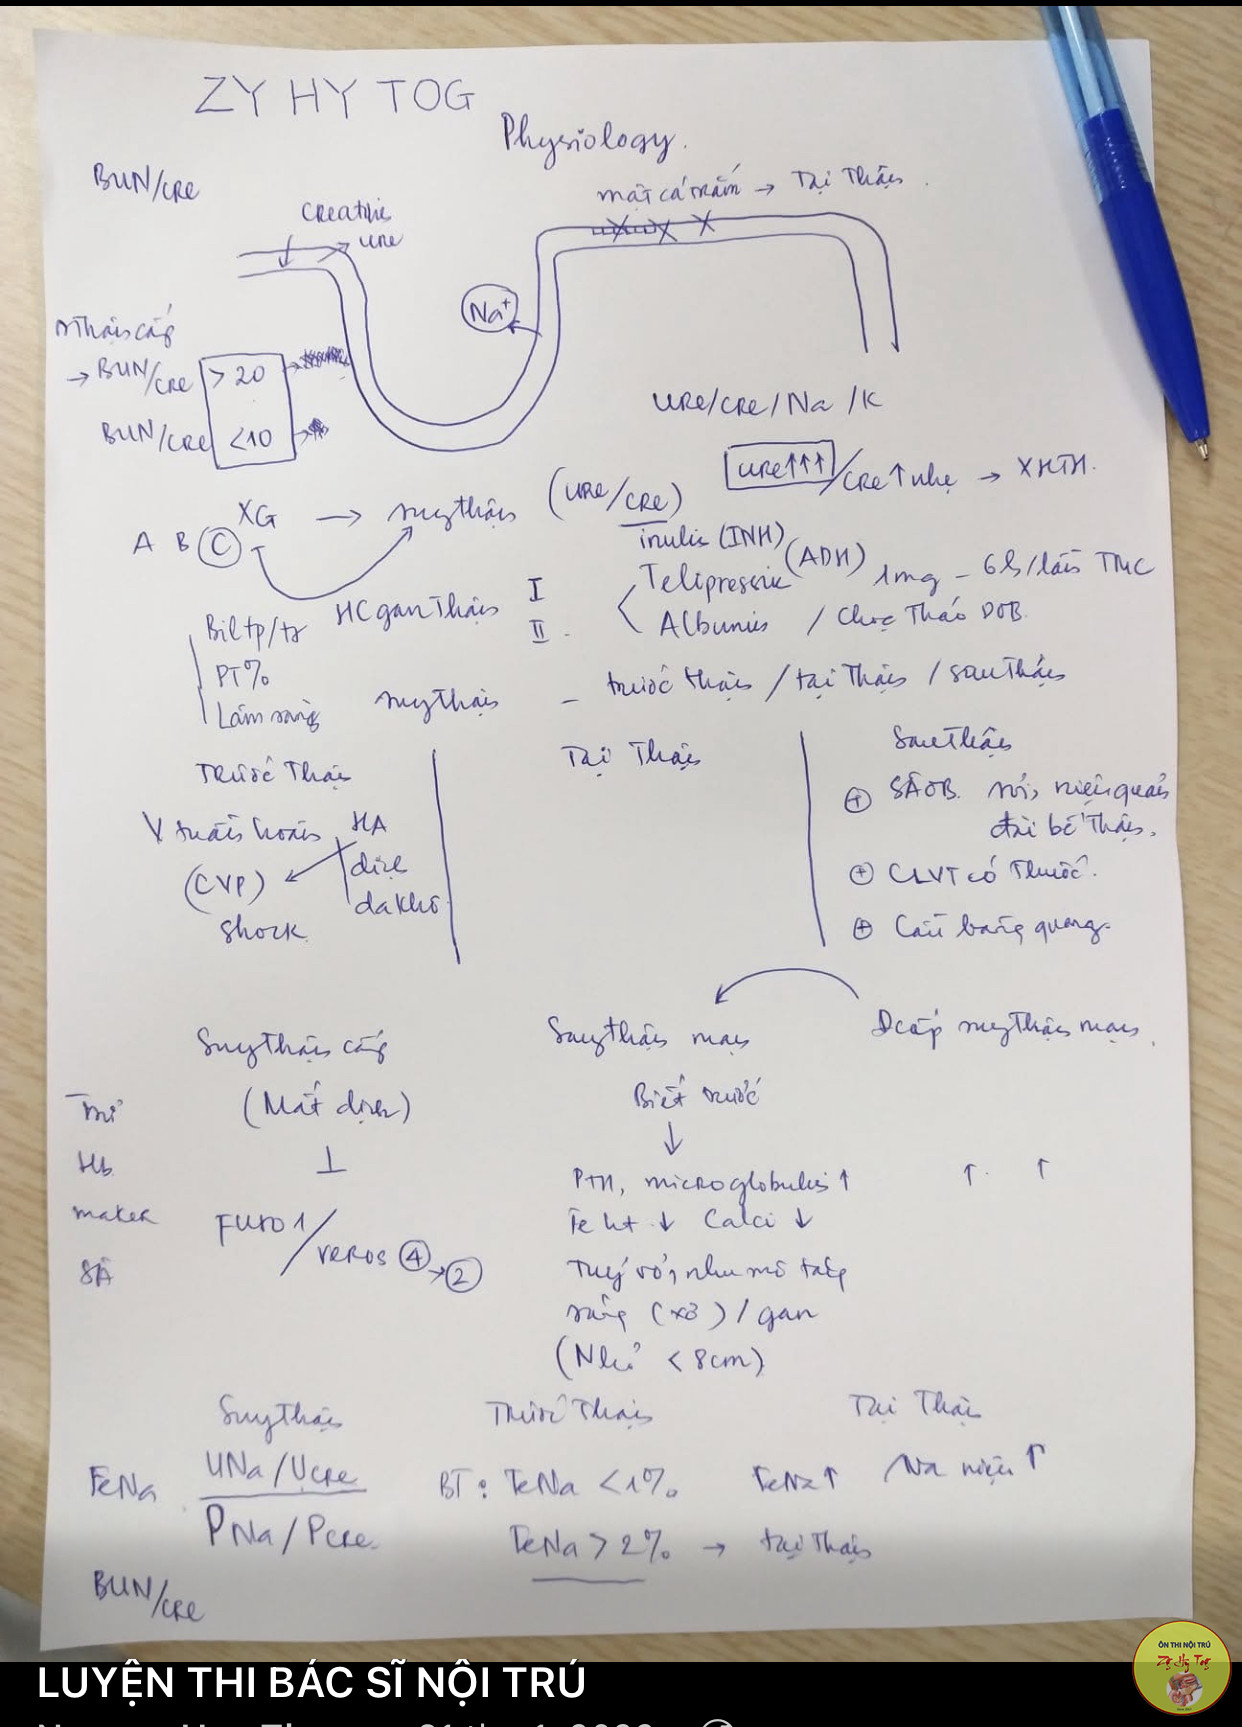 ZY HY TOG
Physiology.
BUN/CRE
mất cá trắm → Tại Thận
Creatine
ure
Na+
Thận cấp
→ BUN/CRE > 20
BUN/CRE < 10
URE/CRE/Na/K
URE↑↑↑/CRE↑ nhẹ → XHTH.
XG → suy thận (URE/CRE)
A B C
inulin (INH)
HC gan Thận I
II
Telipressin (ADH) 1mg - 6h/lần TMC
Albumin / Chọc Tháo DOB.
Bil tp/tt
PT%
Lâm sàng
suy thận - trước thận / tại Thận / sau Thận
Trước Thận
Tại Thận
Sau Thận
V tuần hoàn HA
dịch
da khô
(CVP)
shock
+ SÂOB. sỏi, niệu quản
đài bể Thận.
+ CLVT có Thuốc.
+ Cầu bàng quang.
Suy thận cấp
Suy thận mạn
Đ cấp suy Thận mạn.
(Mất dịch)
Biết trước
↓
Hb
⊥
PTH, microglobulin ↑
↑ ↑
maker
Furo 1/VEROS 4 → 2
Fe ht ↓ Calci ↓
SÂ
Tuỷ vỏ, nhu mô tăng
sáng (x3) / gan
(Nhỏ < 8cm)
Suy thận
Trước Thận
Tại Thận
FeNa UNa/UCRE
PNa/PCRE
BT: FeNa < 1%
FeNa↑ Na niệu ↑
FeNa > 2% → tại Thận
BUN/CRE
LUYỆN THI BÁC SĨ NỘI TRÚ
ÔN THI NỘI TRÚ
Zy Hy Tog